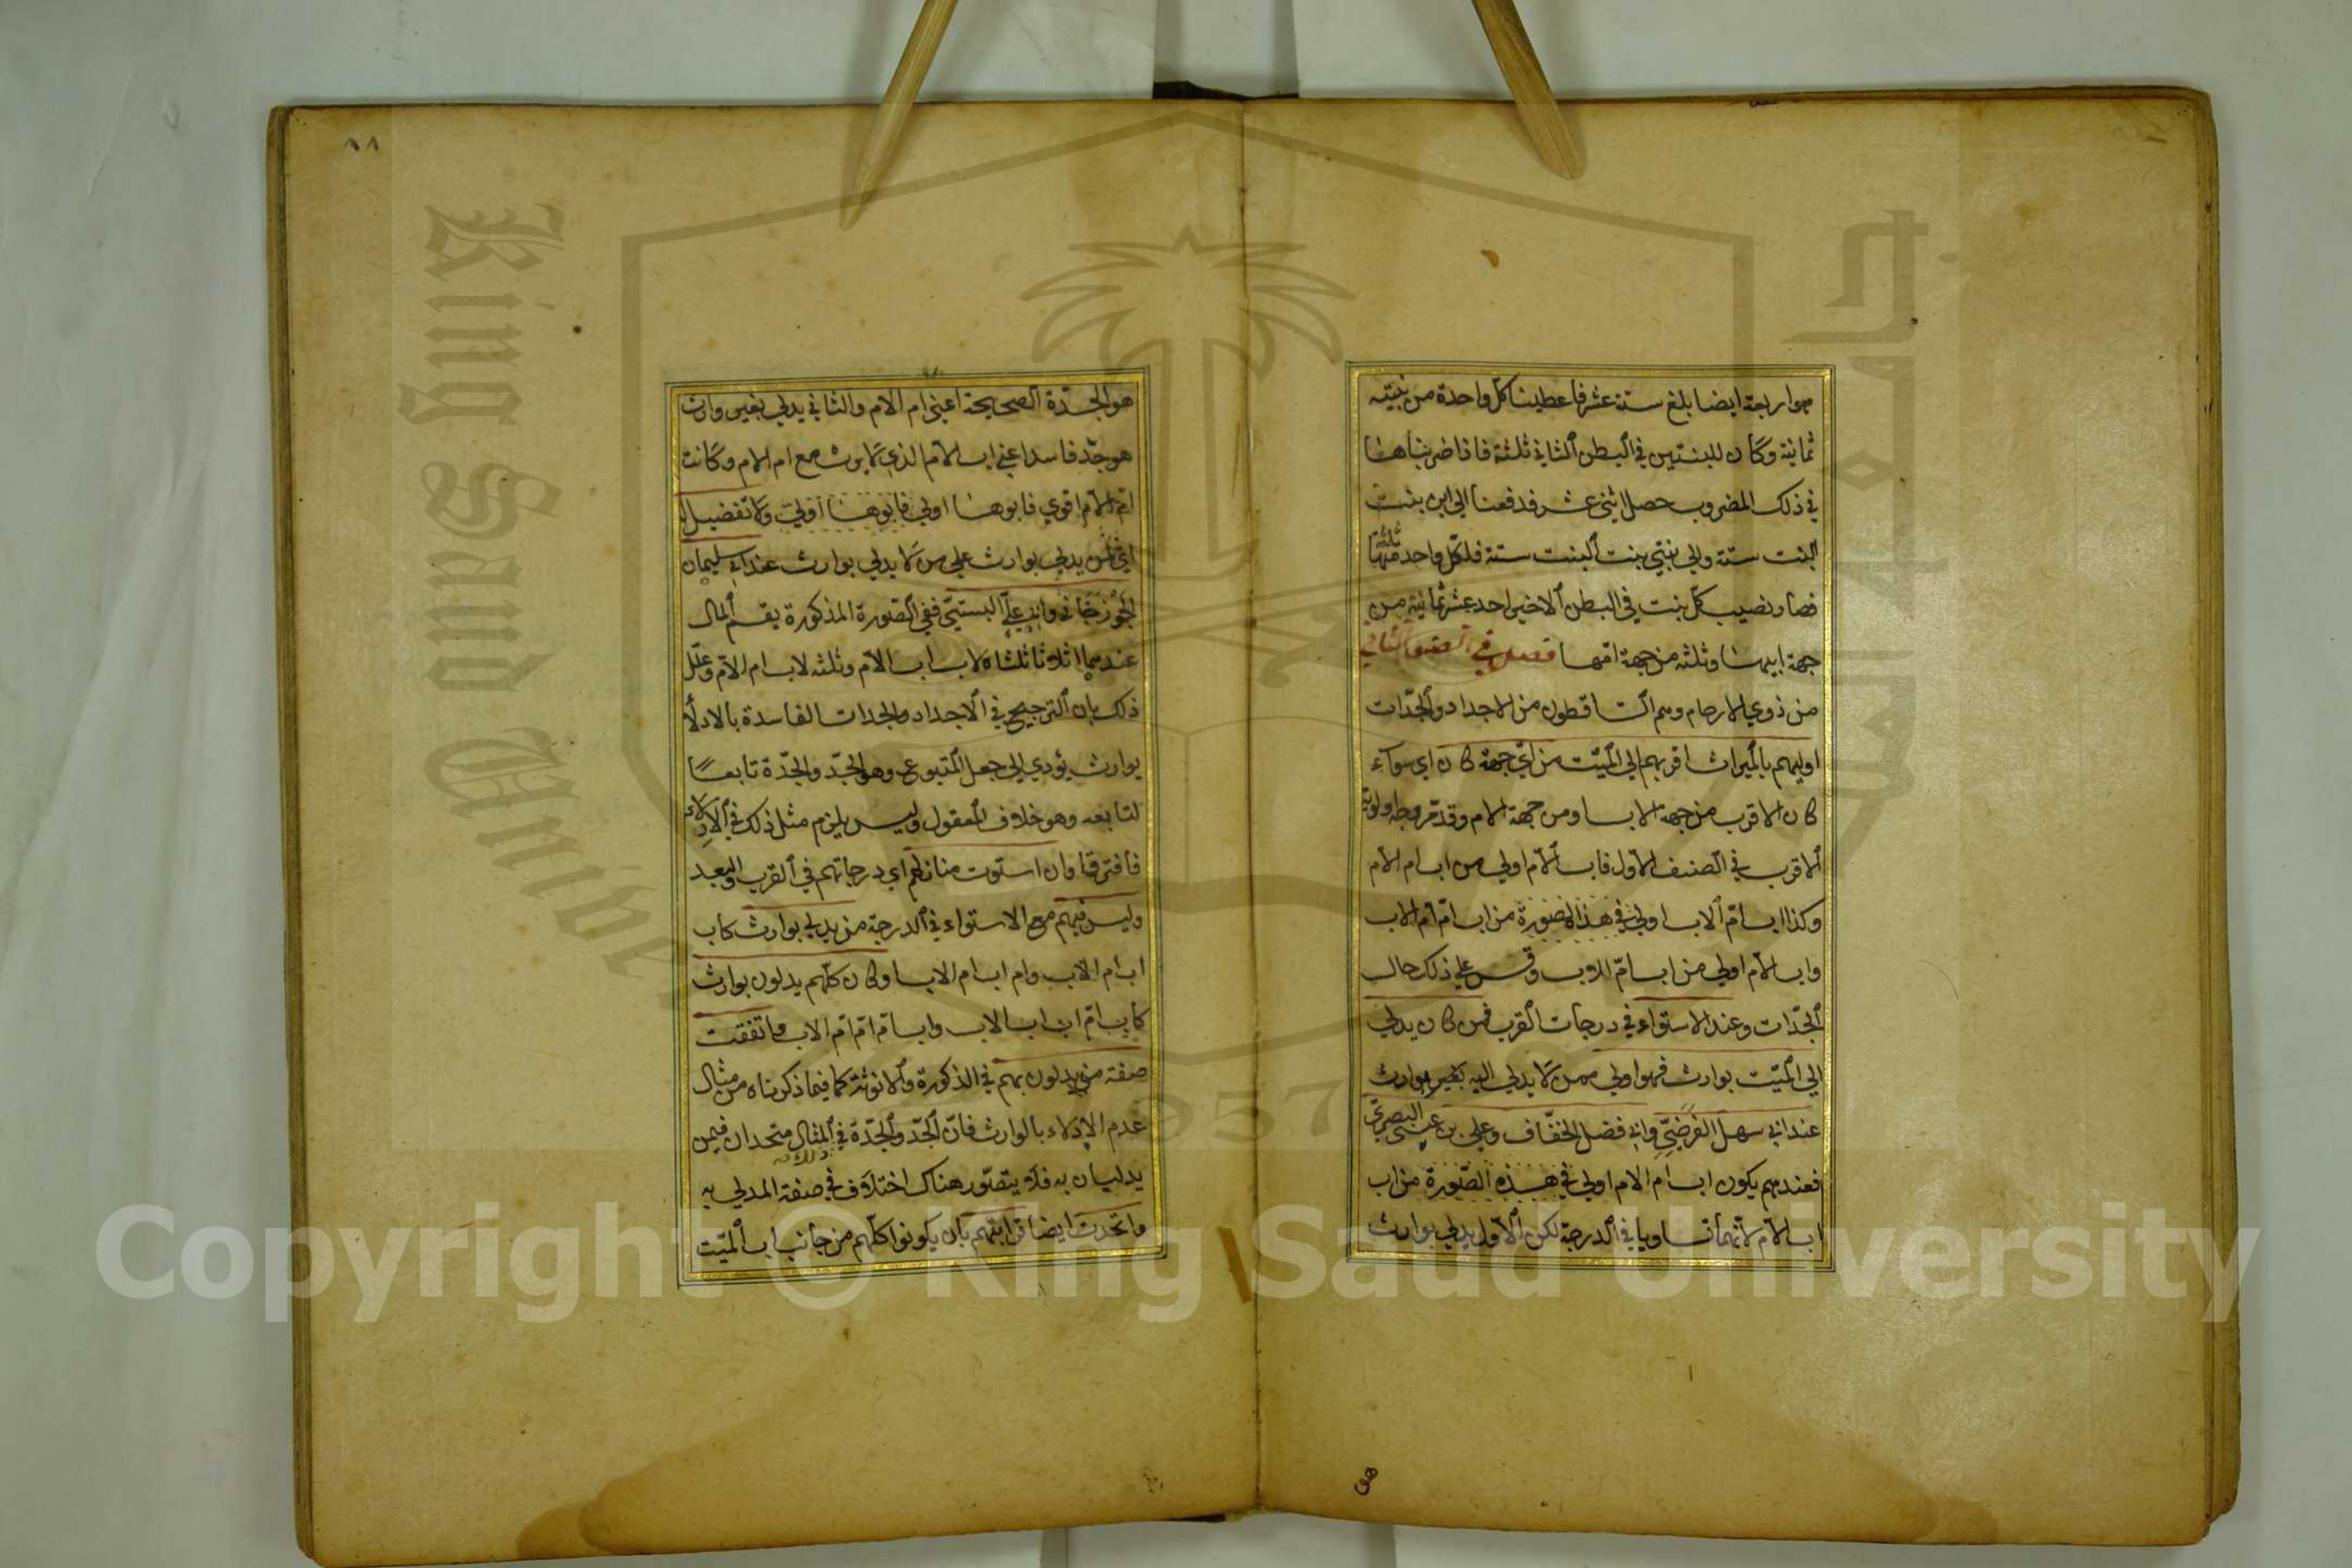 هو اربعة ايضا بلغ ستة عشر فاعطينا كل واحدة من بنتيه
ثمانية وكان للبنتين في البطن الثاني ثلثة فاذا ضربناها
في ذلك المضروب حصل اثني عشر فدفعنا الى ابن بنت
البنت ستة والى بنتي بنت البنت ستة فلكل واحد منهما ثلثة
فصار نصيب كل بنت في البطن الاخير احد عشر ثمانية من
جهة ابيهما وثلثه من جهة امها فصل في الصنف الثاني
من ذوي الارحام وهم الساقطون من الاجداد والجدات
اوليهم بالميراث اقربهم الى الميت من اي جهة كان اي سواء
كان الاقرب من جهة الاب او من جهة الام وقد مر وجه اولوية
الاقرب في الصنف الاول فاب الام اولى من اب ام الام
وكذا اب ام الاب اولى في هذا الصورة من اب ام ام الاب
واب الام اولى من اب ام الاب وقس على ذلك حال
الجدات وعند الاستواء في درجات القرب فمن كان يدلى
الى الميت بوارث فهو اولى ممن لا يدلى اليه بغير بوارث
عند ابي سهل الفرضي وابي فضل الخفاف وعلي بن عيسى البصري
فعندهم يكون اب ام الام اولى في هذه الصورة من اب
اب الام لانهما تساويا في الدرجة لكن الاول يدلى بوارث
هو
٩٨
هو الجدة الصحيحة اعني ام الام والثاني يدلي بغير وارث
هو جد فاسد اعني اب الام الذي لا يرث مع ام الام وكانت
ام الام اقوى فابوها اولى فابوها اولى ولا تفضيل
اي لمن يدلي بوارث على من لا يدلي بوارث عند ابي سليمان
الجوزجاني وابي علي البستي ففي الصورة المذكورة يقسم المال
عندهما اثلاثا ثلثاه لاب اب الام وثلثه لاب ام الام وعلل
ذلك بان الترجيح في الاجداد والجدات الفاسدة بالادلا
بوارث يؤدي الى جعل المتبوع وهو الجد والجدة تابعا
لتابعه وهو خلاف المعقول وليس يلزم مثل ذلك في الاولاد
فافترقا وان استوت منازلهم اي درجاتهم في القرب والبعد
وليس فيهم مع الاستواء في الدرجة من يدلي بوارث كاب
اب ام الاب وام اب ام الاب او كان كلهم يدلون بوارث
كاب ام اب اب الاب واب ام ام ام الاب واتفقت
صفة من يدلون بهم في الذكورة والانوثة كما فيما ذكرناه من مثال
عدم الادلاء بالوارث فان الجد والجدة في المثال متحدان فيمن
يدليان به فلا يتصور هناك اختلاف في صفة المدلي به
واتحدت ايضا قرابتهم بان يكونوا كلهم من جانب اب الميت
King Saud Univer
1957
Copyright © King Saud University